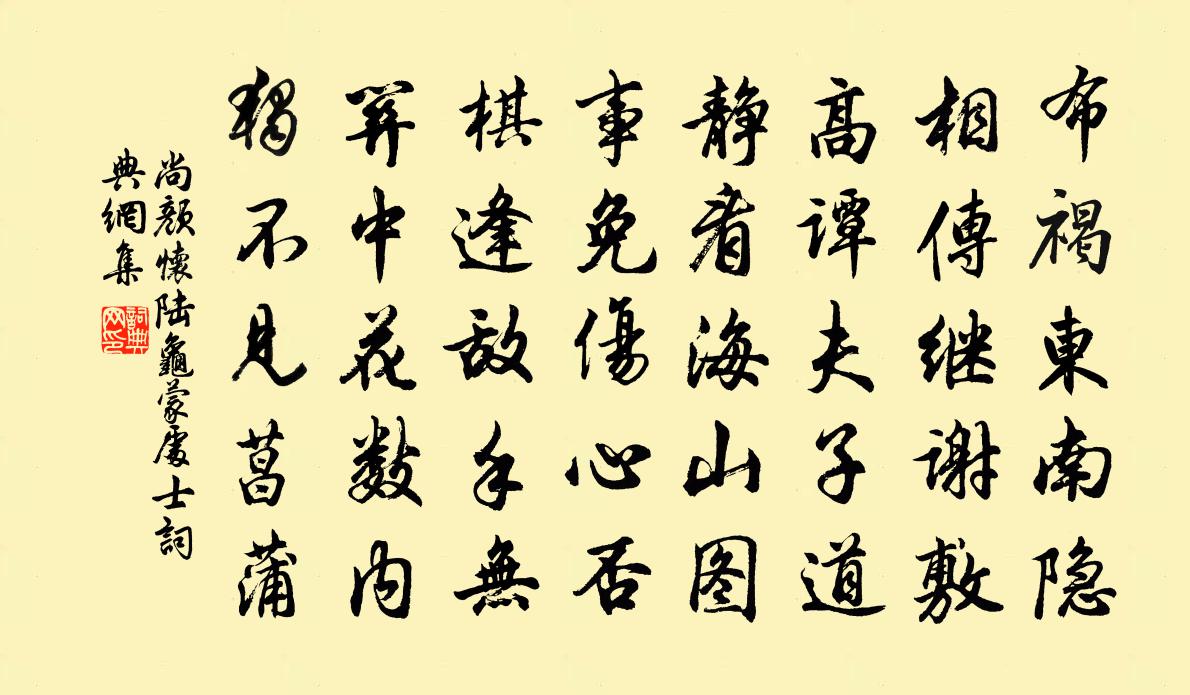 布褐東南隐
相傳继谢敷
高谭夫子道
静看海山图
事免傷心否
棋逢敌手無
關中花數内
獨不見菖蒲
尚顔懷陆龜蒙處士詞
典網集
詞典网印